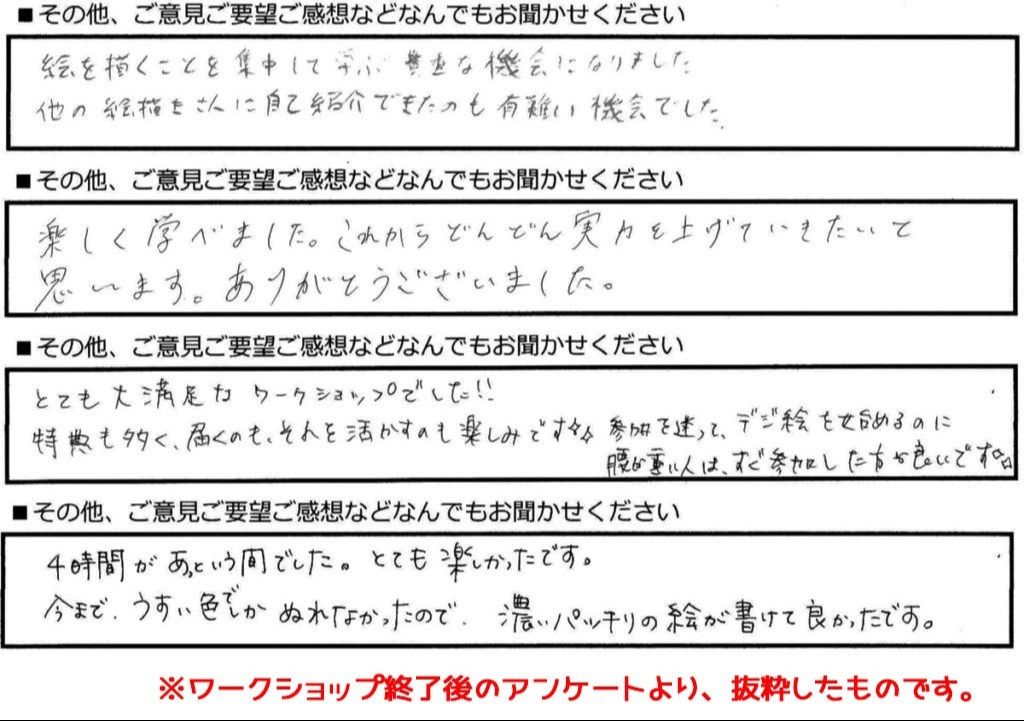 ■その他、ご意見ご要望ご感想などなんでもお聞かせください
絵を描くことを集中して学ぶ貴重な機会になりました
他の絵描きさんに自己紹介できたのも有難い機会でした。
■その他、ご意見ご要望ご感想などなんでもお聞かせください
楽しく学べました。これからどんどん実力を上げていきたいと
思います。ありがとうございました。
■その他、ご意見ご要望ご感想などなんでもお聞かせください
とても大満足なワークショップでした!!
特典も多く、届くのも、それを活かすのも楽しみです☆☆
参加を迷って、デジ絵を始めるのに
腰が重い人は、すぐ参加した方が良いです☆☆
■その他、ご意見ご要望ご感想などなんでもお聞かせください
4時間があっという間でした。とても楽しかったです。
今まで、うすい色でしかぬれなかったので、濃いパッチリの絵が書けて良かったです。
※ワークショップ終了後のアンケートより、抜粋したものです。